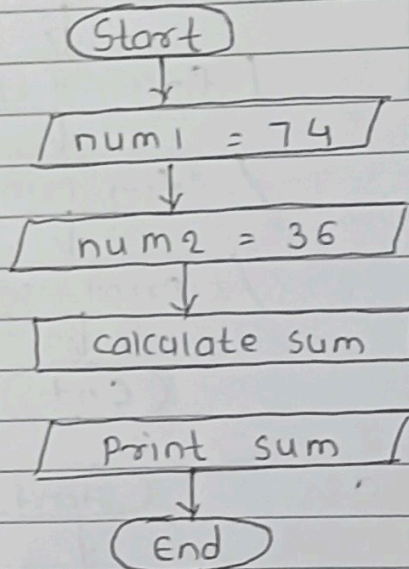 Start
num1 = 74
num2 = 36
calculate sum
Print sum
End